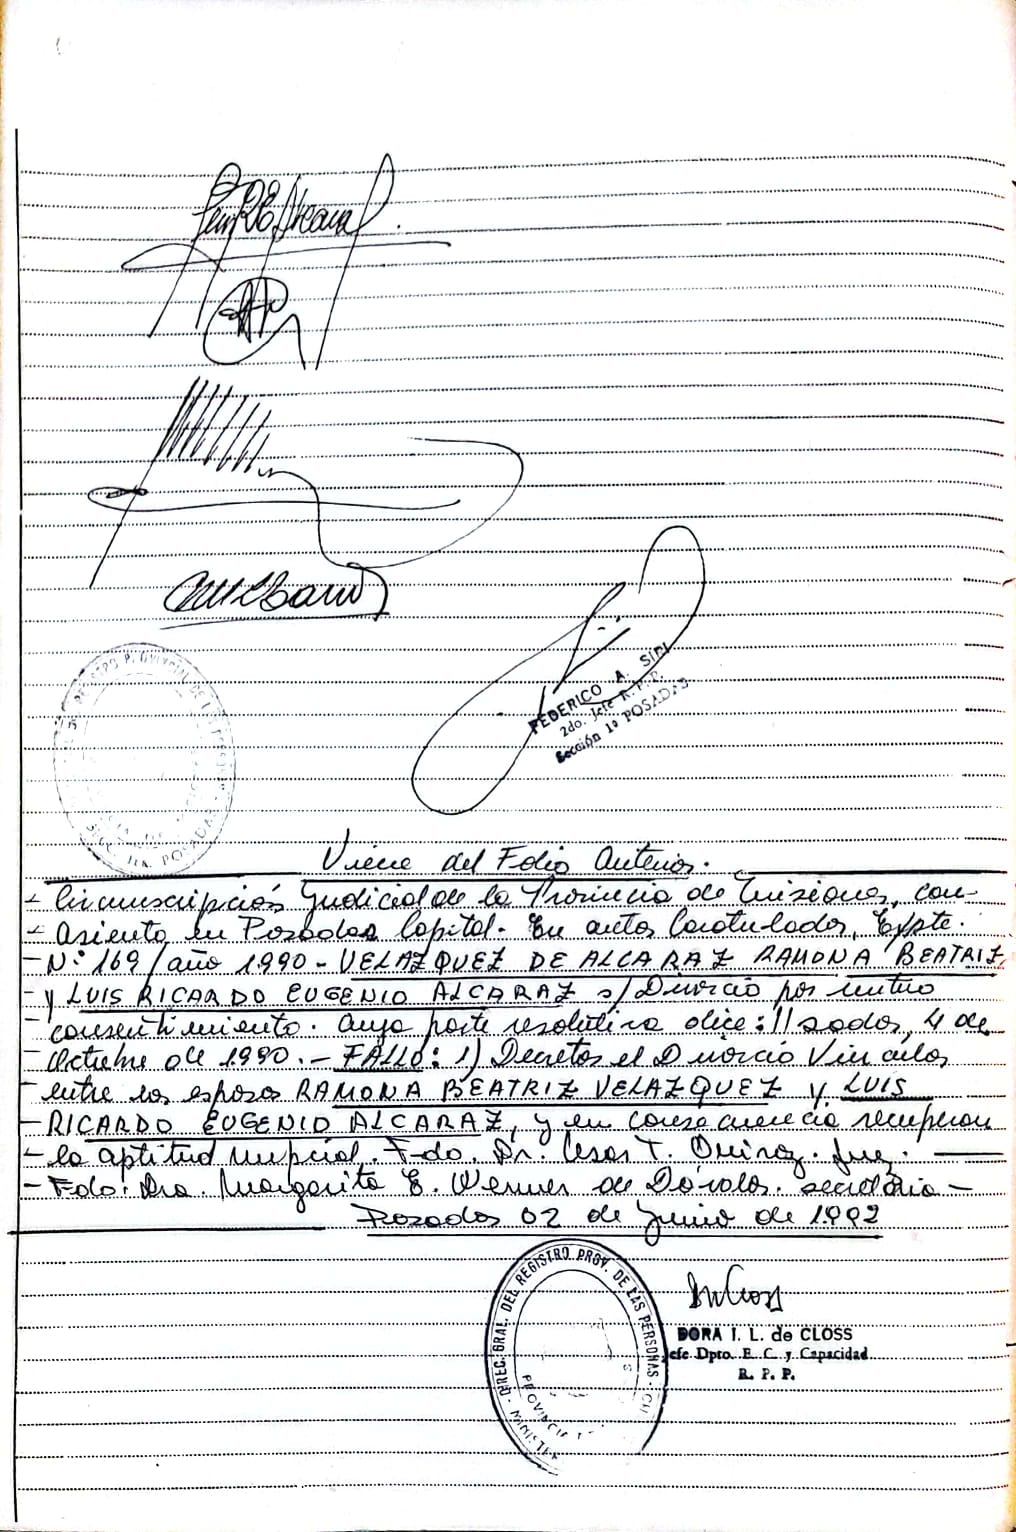 FEDERICO A. SIRI
2do. Jefe R. P. P.
Sección 1ª POSADAS
REGISTRO PROVINCIAL DE LAS
SECC. 1ra. POSADAS
Viene del Folio Anterior.
- Circunscripción Judicial de la Provincia de Misiones, con
- Asiento en Posadas Capital. En autos Caratulados, Expte.
- N° 169/año 1990 - VELAZQUEZ DE ALCARAZ RAMONA BEATRIZ
- y LUIS RICARDO EUGENIO ALCARAZ s/Divorcio por mutuo
- consentimiento. Cuya parte resolutiva dice: //sadas, 4 de
- Octubre de 1990.- FALLO: 1) Decretar el Divorcio Vincular
- entre los esposos RAMONA BEATRIZ VELAZQUEZ y LUIS
- RICARDO EUGENIO ALCARAZ, y en consecuencia recuperan
- la aptitud nupcial. Fdo. Dr. Cesar T. Quiroz. Juez.
- Fdo: Dra. Margarita E. Werner de Dávalos. secretaria -
Posadas 02 de Junio de 1992
DIREC. GRAL. DEL REGISTRO PROV. DE LAS PERSONAS
PROVINCIA
DORA I. L. de CLOSS
Jefe Dpto. E. C. y Capacidad
R. P. P.